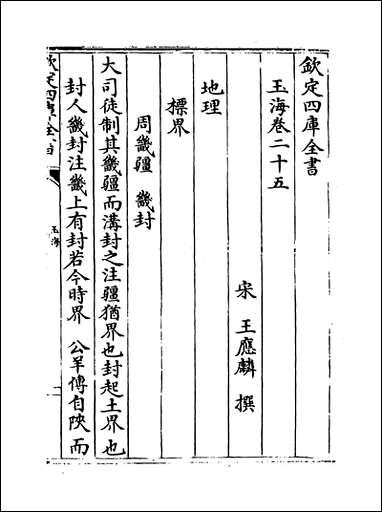 欽定四庫全書
玉海卷二十五
宋 王應麟 撰
地理
標界
周畿疆 畿封
大司徒制其畿疆而溝封之注疆猶界也封起土界也
封人畿封注畿上有封若今時界 公羊傳自陝而
欽定四庫全書
玉海
一